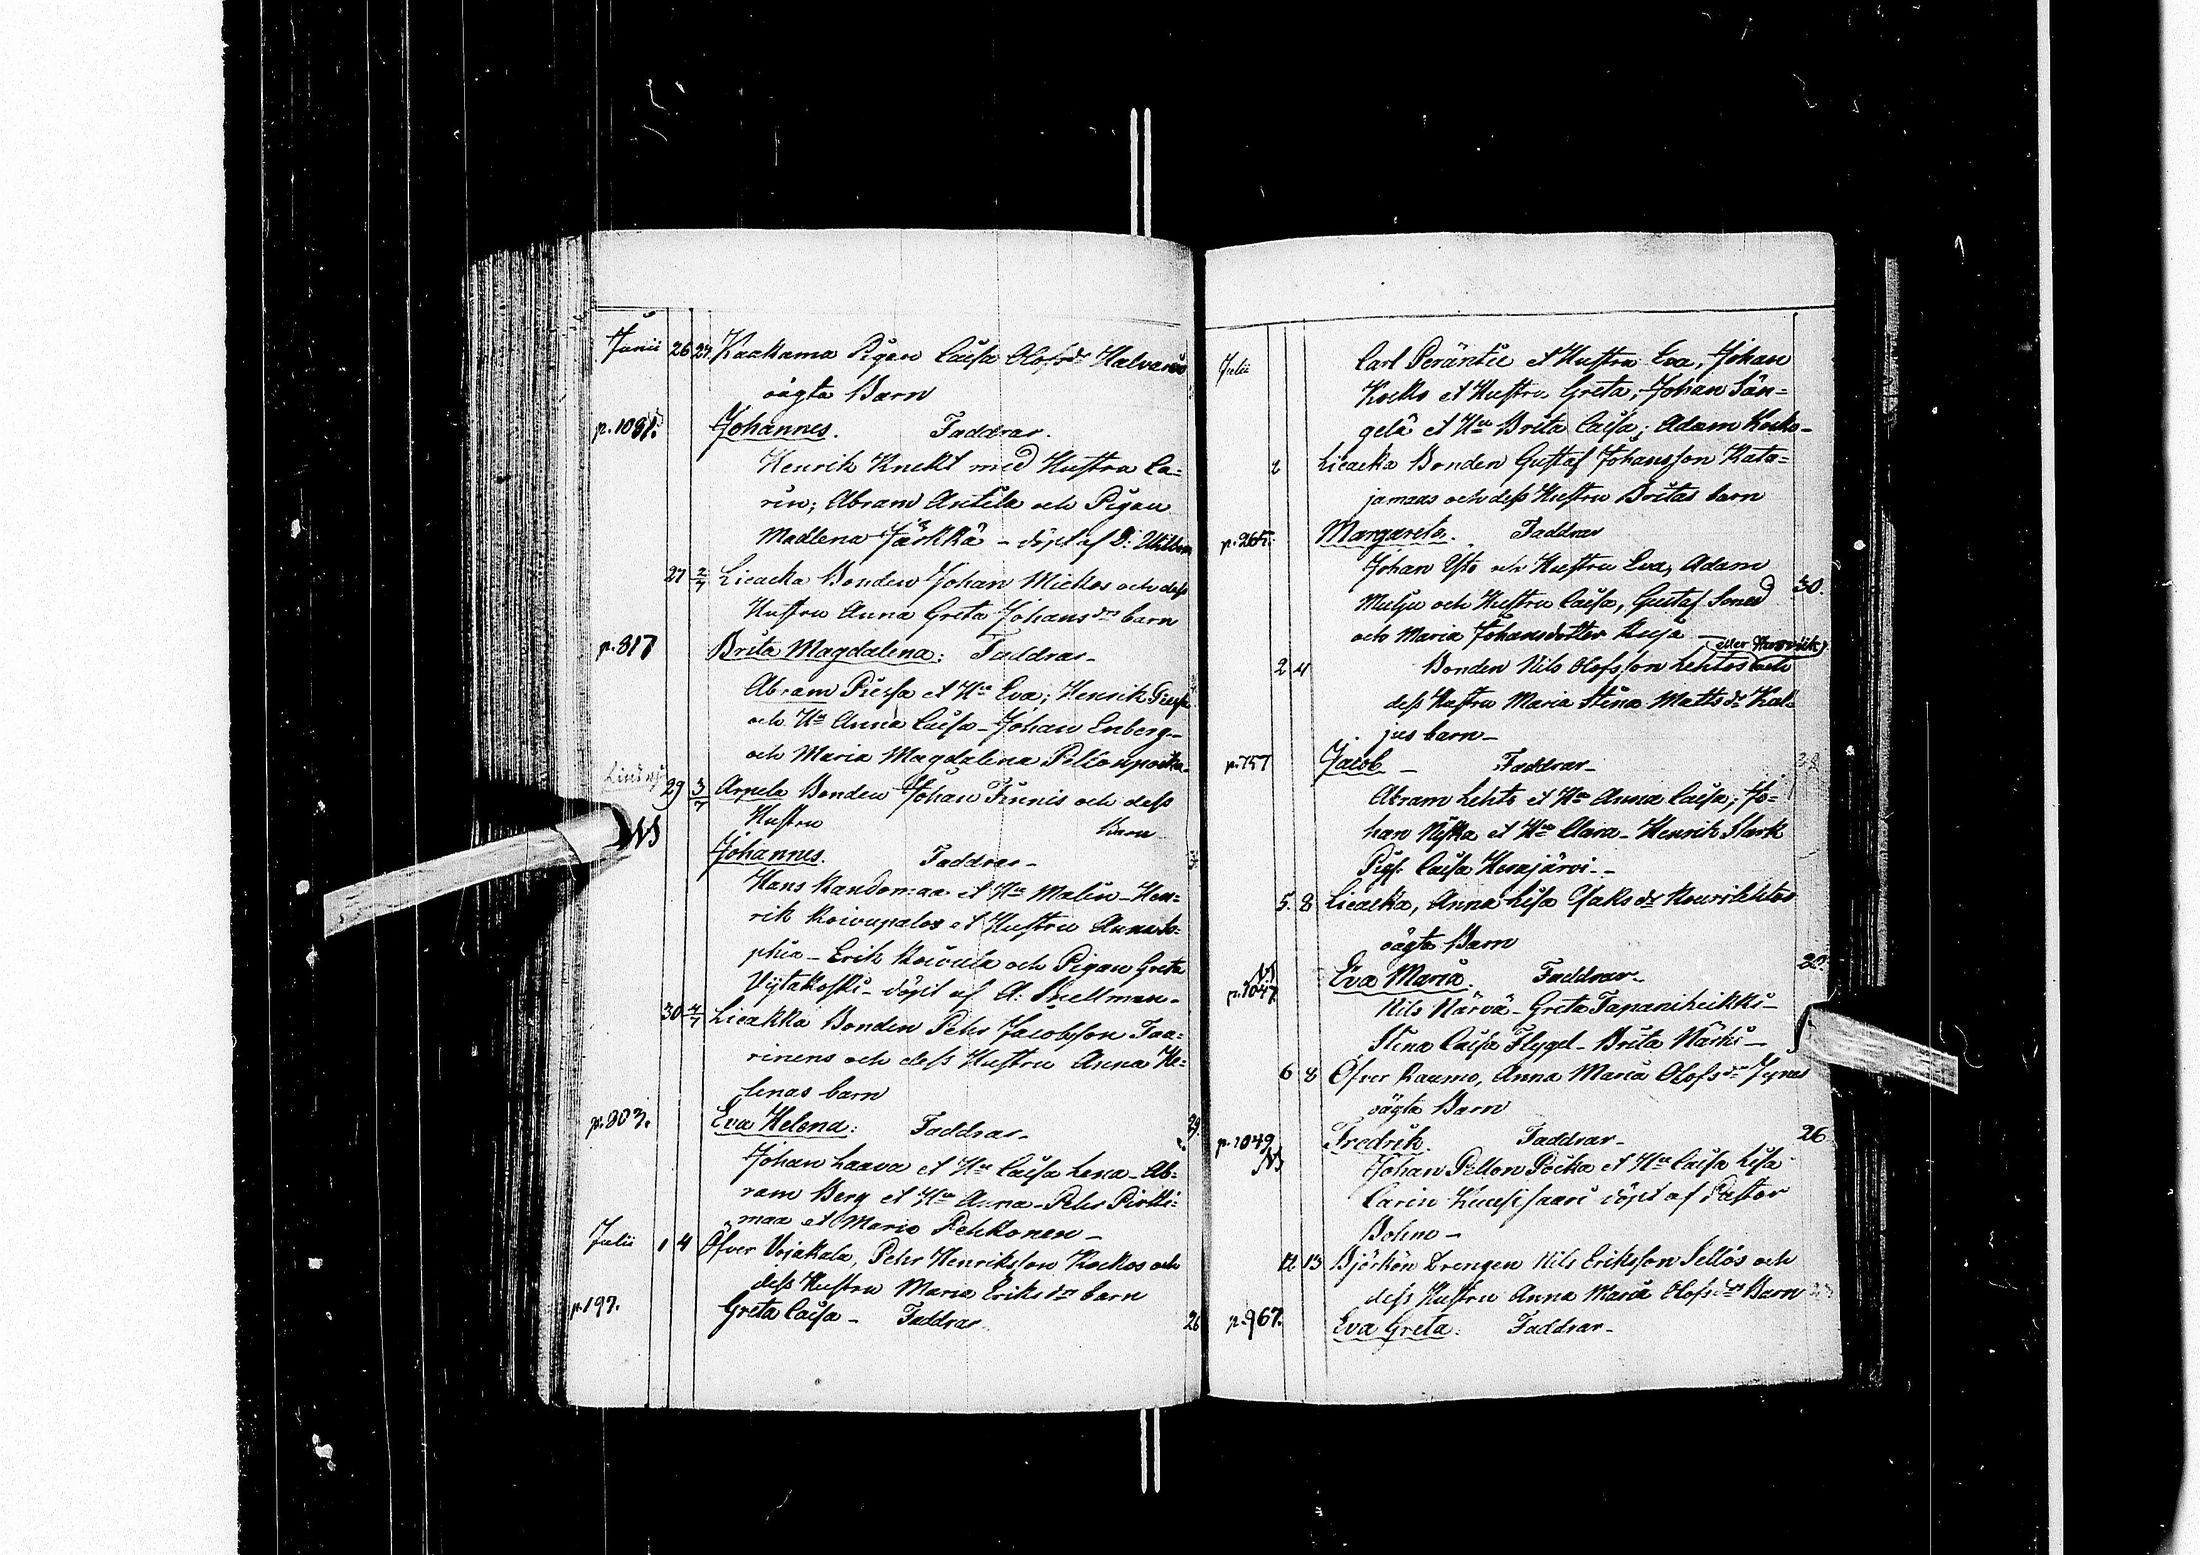 Junii 26 27. Kaakama Pigan Caisa Olofsdr Halvaris
oägta Barn
p. 1081. Johannes. Faddrar.
Henrik Knekt med Hustru Ca=
rin; Abram Antila och Pigan
Madlena Järkkä - döpt af D:
27 2/7 Liedakka Bonden Johan Mickos och dess
Hustru Anna Greta Johansdrs barn
p. 817 Brita Magdalena: Faddrar-
Abram Piessa et Hu Eva; Henrik Piessa
och Hu Anna Caisa - Johan Enberg-
och Maria Magdalena Pellonpoika-
29 3/7 Arpela Bonden Johan Finnis och dess
NS Hustru Barn
Johannes. Faddrar-
Hans Randomaa et Hu Malin - Hen=
rik Koivupalos et Hustru Anna So=
phia - Erik Koivula och Pigan Greta
Viitakoski - döpt af A: Snellman-
30 4/7 Liedakka Bonden Pehr Jacobsson Taa=
rinens och dess Hustru Anna He=
lenas barn
p. 803. Eva Helena: Faddrar- 29
Johan Laava et Hu Caisa Lena - Ab=
ram Berg et Hu Anna - Pehr Pirtti=
maa et Maria Pekkonen -
Julii 1 4 Öfver Vojakala, Pehr Henriksson Kockos och
dess Hustru Maria Eriksdrs barn
p. 197. Greta Caisa - Faddrar 26
Julii Carl Peräntie et Hustru Eva, Johan
Kocko et Hustru Greta; Johan Sän=
gelä et Hu Brita Caisa; Adam Kocko-
2 Liedakka Bonden Gustaf Johansson Kata=
jamaas och dess Hustru Britas barn
p. 265. Margareta. Faddrar
Johan Ylto och Hustru Eva, Adam
och Hustru Caisa, Gustaf 30.
och Maria Johansdotter
eller
2 4 Bonden Nils Olofsson Lehtos och
dess Hustru Maria Stina Mattsdr Kal=
jus barn-
p. 757 Jacob - Faddrar-
Abram Lehto et Hu Anna Caisa; Jo=
han Niska et Hu Clara - Henrik Stark
Pig: Caisa Hernjärvi--
5. 8 Liedakka, Anna Lisa Isaksdr Kourilehtos
oägta Barn
NS 20.
p. 1047 Eva Maria. Faddrar-
Nils Närvä - Greta Tapaniheikki-
Stina Caisa Flygel - Brita Närhi-
6 8 Öfver Raumo, Anna Maria Olofsdr Jynäs
oägta Barn
p. 1049 Fredrik. Faddrar- 26
NS Johan Pellon Poika et Hu Caisa Lisa
Carin döpt af Pastor
Bohm -
12 13 Björkön Drengen Nils Eriksson Sellös och
dess Hustru Anna Maria Olofsdrs Barn
p. 967. Eva Greta: Faddrar-